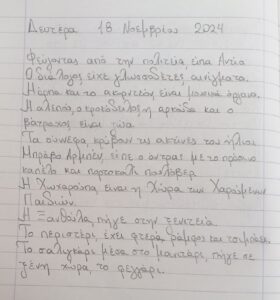 Δευτέρα 18 Νοεμβρίου 2024
Φεύγοντας από την πολιτεία, είπα Αντίο
Ο διάλογος είχε γλωσσοδέτες, αινίγματα.
Η άρπα και το ακορντεόν, είναι μουσικά όργανα.
Η αλεπού, ο κροκόδειλος, η αρκούδα και ο
βάτραχος είναι ζώα
Τα σύννεφα κρύβουν τις ακτίνες του ήλιου
Μπράβο Αρμπέν, είπε ο άντρας με το πράσινο
καπέλο και πορτοκαλί πουλόβερ
Η Χωχαρούπα, είναι η Χώρα των Χαρούμενων
Παιδιών.
Η Ξανθούλα, πήγε στην ξενιτειά
Το περιστέρι, έχει φτερά, ράμφος και τσιμπάει.
Το σαλιγκάρι μέσα στο μανιτάρι, πήγε σε
ξένη χώρα, το φεγγάρι.